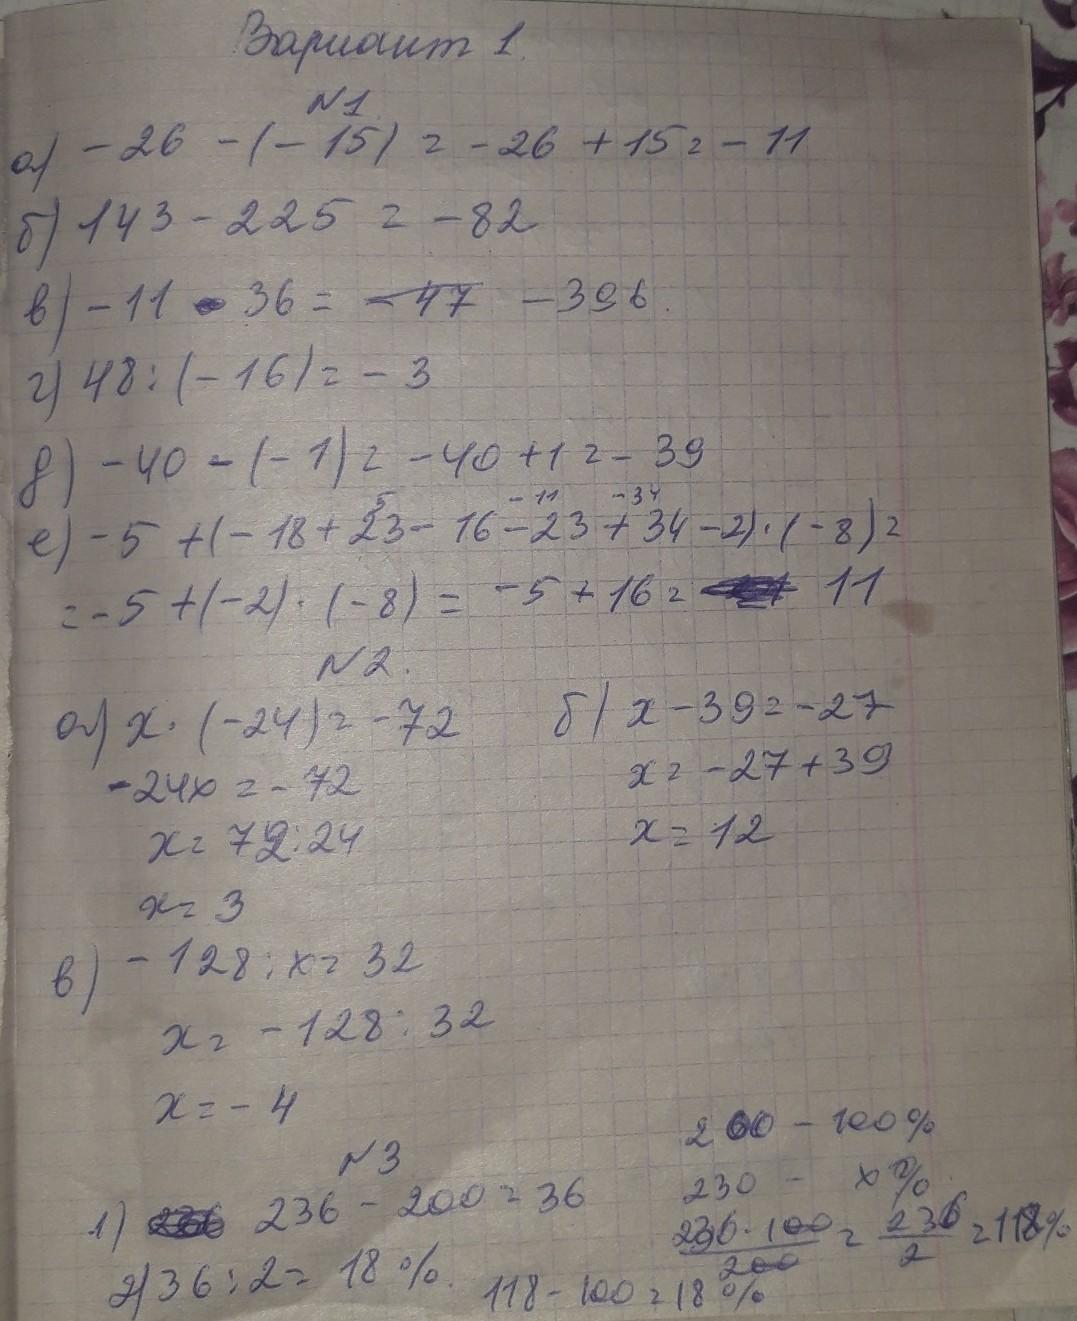 Вариант 1.
№1.
а) -26 -(-15) = -26 +15 = -11
б) 143 - 225 = -82
в) -11 • 36 = -47 -396.
г) 48 : (-16) = -3
д) -40 - (-1) = -40 +1 = -39
5 -11 -34
е) -5 +(-18 + 23 - 16 - 23 + 34 -2) · (-8) =
= -5 +(-2) · (-8) = -5 + 16 = 11
№2.
а) x · (-24) = -72
-24x = -72
x = 72 : 24
x = 3
б) x - 39 = -27
x = -27 + 39
x = 12
в) -128 : x = 32
x = -128 : 32
x = -4
№3
1) 236 - 200 = 36
2) 36 : 2 = 18 %.
200 - 100 %
230 - x %
236 · 100 / 200 = 236 / 2 = 118 %
118 - 100 = 18 %